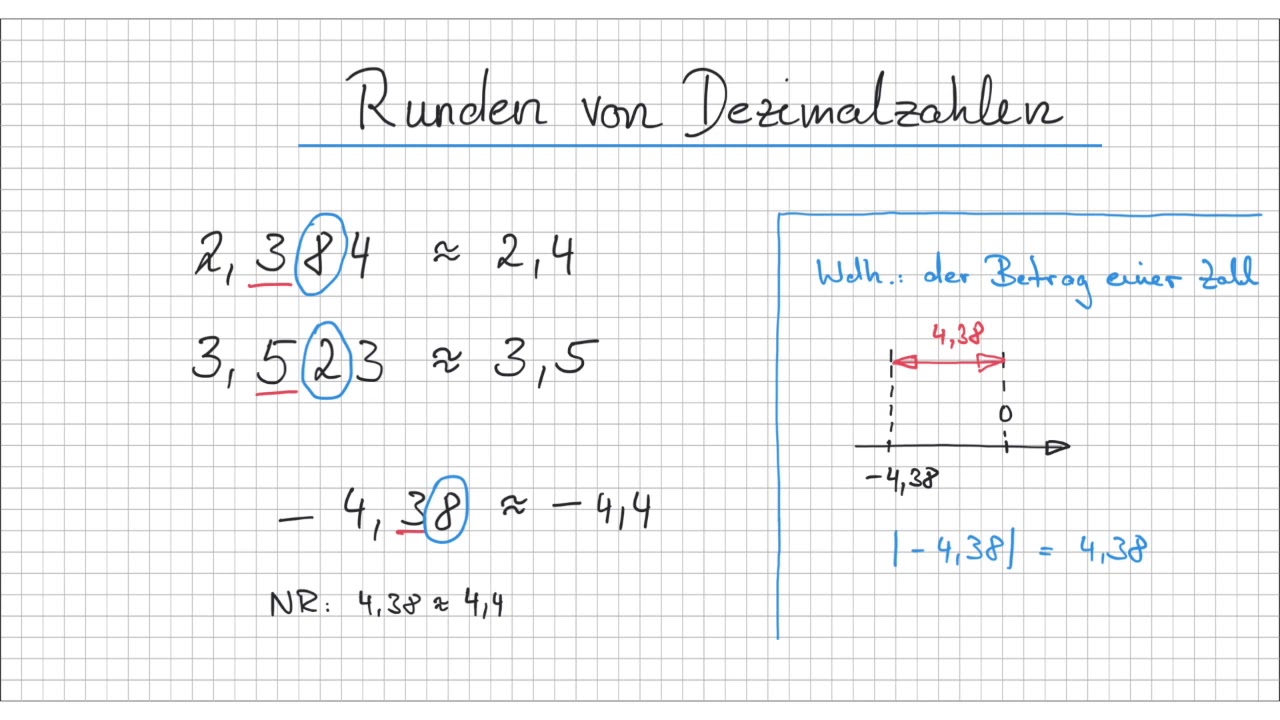 Runden von Dezimalzahlen
2,384 ≈ 2,4
3,523 ≈ 3,5
- 4,38 ≈ - 4,4
NR: 4,38 ≈ 4,4
Wdh.: der Betrag einer Zahl
4,38
0
-4,38
|- 4,38| = 4,38